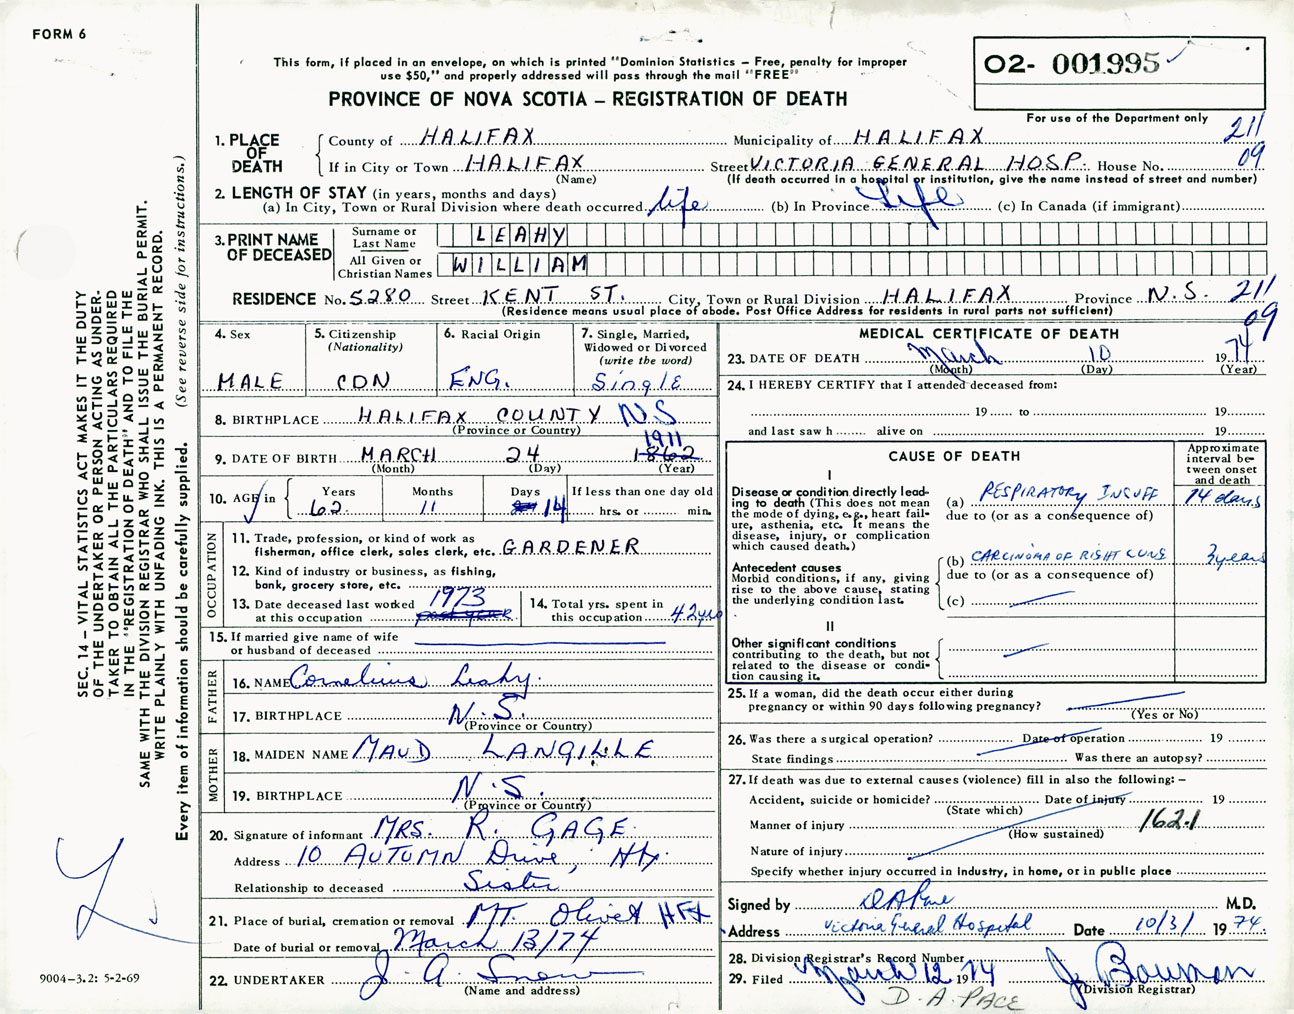 FORM 6
This form, if placed in an envelope, on which is printed "Dominion Statistics – Free, penalty for improper
use $50," and properly addressed will pass through the mail "FREE"
PROVINCE OF NOVA SCOTIA – REGISTRATION OF DEATH
02- 001995
For use of the Department only
211
09
1. PLACE OF DEATH
County of HALIFAX Municipality of HALIFAX
If in City or Town HALIFAX Street VICTORIA GENERAL HOSP. House No.
(Name) (If death occurred in a hospital or institution, give the name instead of street and number)
2. LENGTH OF STAY (in years, months and days)
(a) In City, Town or Rural Division where death occurred life (b) In Province Life (c) In Canada (if immigrant)
3. PRINT NAME OF DECEASED
Surname or Last Name LEAHY
All Given or Christian Names WILLIAM
RESIDENCE No. 5280 Street KENT ST. City, Town or Rural Division HALIFAX Province N.S. 211
(Residence means usual place of abode. Post Office Address for residents in rural parts not sufficient) 09
4. Sex MALE
5. Citizenship (Nationality) CDN
6. Racial Origin ENG.
7. Single, Married, Widowed or Divorced (write the word) Single
8. BIRTHPLACE HALIFAX COUNTY N.S
(Province or Country)
1911
9. DATE OF BIRTH MARCH 24 1862
(Month) (Day) (Year)
10. AGE in Years 62 Months 11 Days 14 If less than one day old hrs. or min.
OCCUPATION
11. Trade, profession, or kind of work as
fisherman, office clerk, sales clerk, etc. GARDENER
12. Kind of industry or business, as fishing,
bank, grocery store, etc.
13. Date deceased last worked 1973
at this occupation past year
14. Total yrs. spent in
this occupation 42 yrs
15. If married give name of wife
or husband of deceased
FATHER
16. NAME Cornelius Leahy
17. BIRTHPLACE N.S.
(Province or Country)
MOTHER
18. MAIDEN NAME MAUD LANGILLE
19. BIRTHPLACE N.S.
(Province or Country)
20. Signature of informant MRS. R. GAGE
Address 10 AUTUMN Drive, Hfx.
Relationship to deceased Sister
21. Place of burial, cremation or removal MT. Olivet HFX
Date of burial or removal March 13/74
22. UNDERTAKER J. A. Snow
(Name and address)
MEDICAL CERTIFICATE OF DEATH
23. DATE OF DEATH March 10 1974
(Month) (Day) (Year)
24. I HEREBY CERTIFY that I attended deceased from:
19 to 19
and last saw h alive on 19
CAUSE OF DEATH
Approximate interval between onset and death
I
Disease or condition directly leading to death (This does not mean the mode of dying, e.g., heart failure, asthenia, etc. It means the disease, injury, or complication which caused death.)
(a) RESPIRATORY INSUFF 14 days
due to (or as a consequence of)
Antecedent causes
Morbid conditions, if any, giving rise to the above cause, stating the underlying condition last.
(b) CARCINOMA OF RIGHT LUNG 3 years
due to (or as a consequence of)
(c)
II
Other significant conditions
contributing to the death, but not related to the disease or condition causing it.
25. If a woman, did the death occur either during
pregnancy or within 90 days following pregnancy?
(Yes or No)
26. Was there a surgical operation? Date of operation 19
State findings Was there an autopsy?
27. If death was due to external causes (violence) fill in also the following: –
Accident, suicide or homicide? Date of injury 19
(State which)
Manner of injury 162.1
(How sustained)
Nature of injury
Specify whether injury occurred in industry, in home, or in public place
Signed by D A Pace M.D.
Address Victoria General Hospital Date 10/3/ 1974.
28. Division Registrar's Record Number
29. Filed March 12 1974 J. Bowman
(Division Registrar)
D. A. PACE
SEC. 14 – VITAL STATISTICS ACT MAKES IT THE DUTY
OF THE UNDERTAKER OR PERSON ACTING AS UNDER-
TAKER TO OBTAIN ALL THE PARTICULARS REQUIRED
IN THE "REGISTRATION OF DEATH" AND TO FILE THE
SAME WITH THE DIVISION REGISTRAR WHO SHALL ISSUE THE BURIAL PERMIT.
WRITE PLAINLY WITH UNFADING INK. THIS IS A PERMANENT RECORD.
Every item of information should be carefully supplied. (See reverse side for instructions.)
9004-3.2: 5-2-69